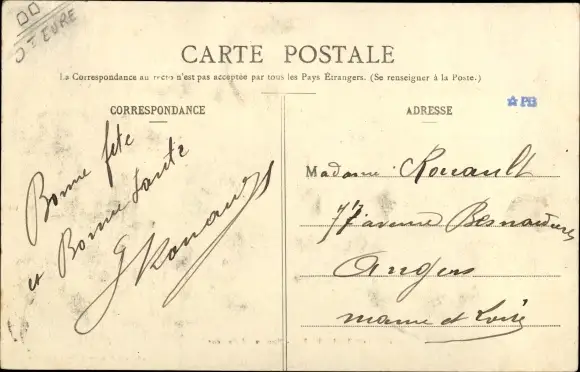 JTEURE
CARTE POSTALE
La Correspondance au recto n'est pas acceptée par tous les Pays Étrangers. (Se renseigner à la Poste.)
CORRESPONDANCE
Bonne fête
et Bonne Santé
G Rouault
ADRESSE
PB
Madame Rouault
avenue Besnardière
Angers
Maine et Loire